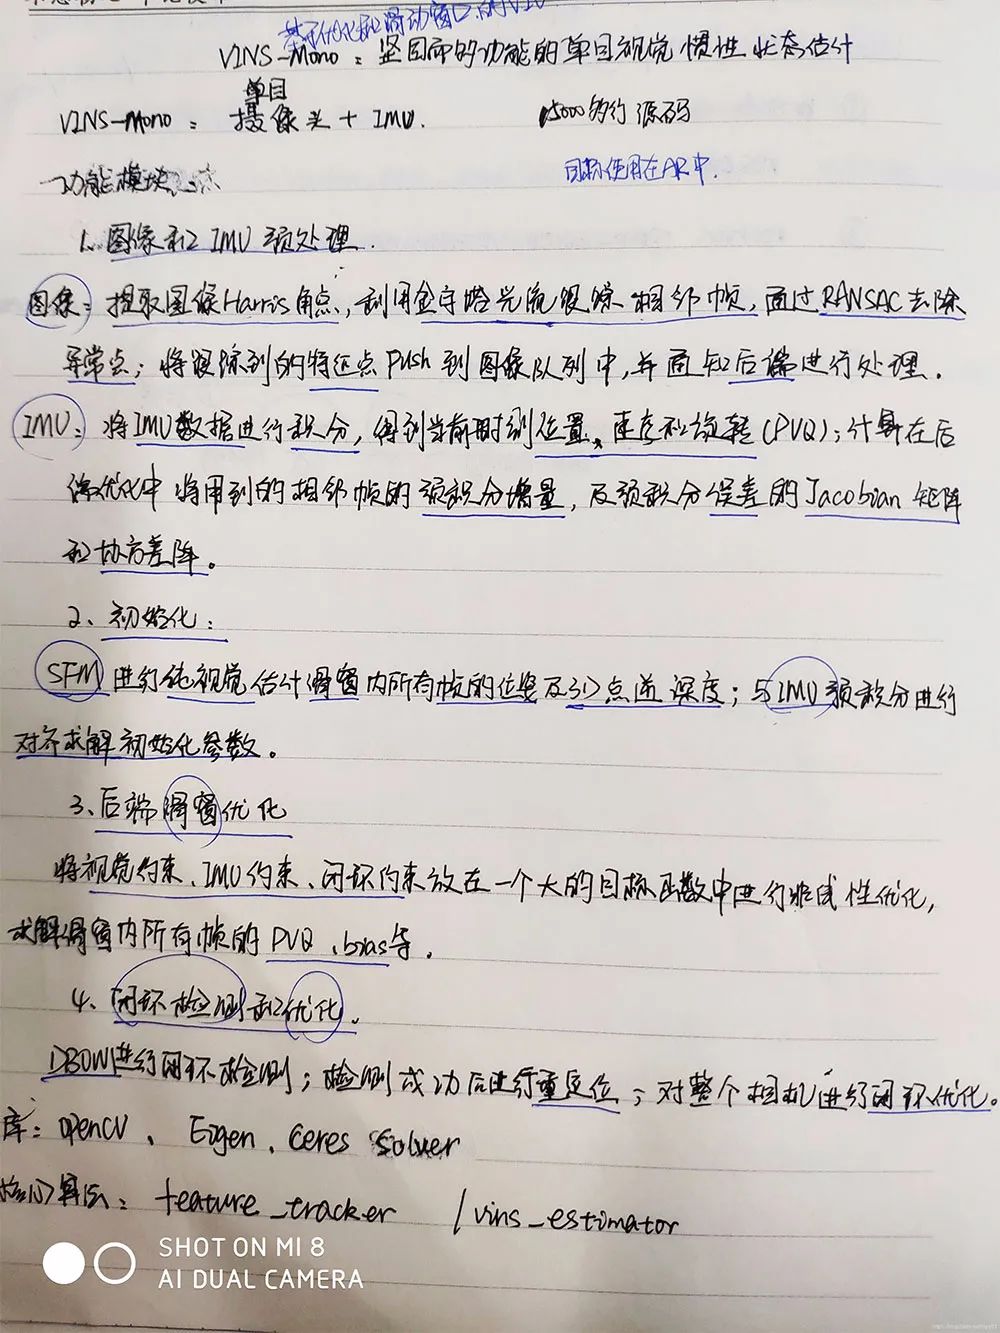 基于优化和滑动窗口的VIO
VINS-Mono：坚固而多功能的单目视觉惯性状态估计
单目
VINS-Mono： 摄像头 + IMU. 15000多行源码
目标使用在AR中.
功能模块
1、图像和IMU预处理.
图像：提取图像Harris角点，利用金字塔光流跟踪相邻帧，通过RANSAC去除
异常点；将跟踪到的特征点push到图像队列中，并通知后端进行处理.
IMU：将IMU数据进行积分，得到当前时刻位置、速度和旋转(PVQ)；计算在后
端优化中将用到的相邻帧的预积分增量，及预积分误差的Jacobian矩阵
和协方差阵。
2、初始化：
SFM进行纯视觉估计滑窗内所有帧的位姿及3D点逆深度；与IMU预积分进行
对齐求解初始化参数。
3、后端滑窗优化
将视觉约束、IMU约束、闭环约束放在一个大的目标函数中进行非线性优化，
求解滑窗内所有帧的PVQ、bias等.
4、闭环检测和优化.
DBOW进行闭环检测；检测成功后进行重定位；对整个相机进行闭环优化。
库：opencv、Eigen、Ceres Solver
核心算法：feature_tracker / vins_estimator
SHOT ON MI 8
AI DUAL CAMERA